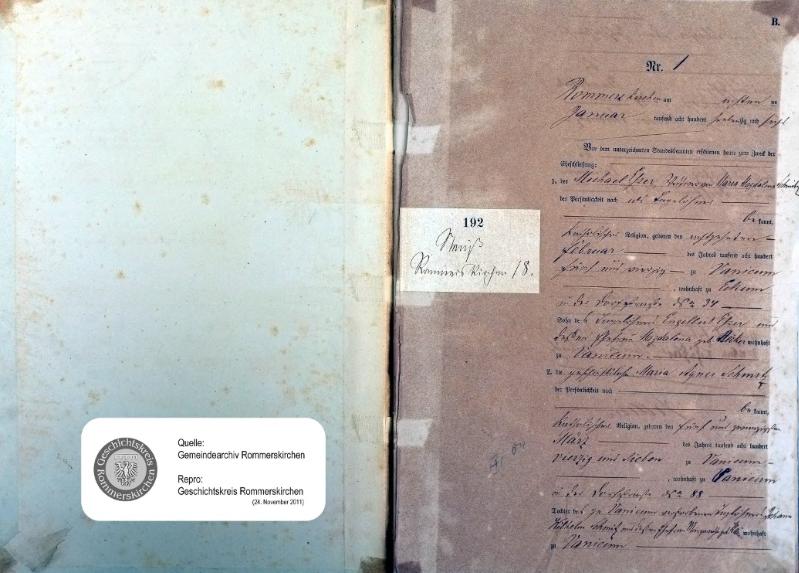 Geschichtskreis Rommerskirchen
Quelle:
Gemeindearchiv Rommerskirchen
Repro:
Geschichtskreis Rommerskirchen
(24. November 2011)
192
Rommerskirchen 18.
B.
Nr. 1
Rommerskirchen am ersten
Januar tausend acht hundert siebenzig und sechs
Vor dem unterzeichneten Standesbeamten erschienen heute zum Zweck der
Eheschließung:
1. der Michael Esser Maria Magdalena
der Persönlichkeit nach
be kannt,
katholischer Religion, geboren den achtzehnten
Februar des Jahres tausend acht hundert
fünf und vierzig zu Vanicum
, wohnhaft zu Eckum
in der Dorfstraße No 34
Sohn des Engelbert Esser und
dessen Ehefrau Magdalena geb. wohnhaft
zu Vanicum
2. die Maria Agnes Schmitz
der Persönlichkeit nach
be kannt,
katholischer Religion, geboren den fünf und zwanzigsten
März des Jahres tausend acht hundert
vierzig und sieben zu Vanicum
, wohnhaft zu Vanicum
in der Dorfstraße No 88
Tochter des zu Vanicum verstorbenen Johann
Wilhelm Schmitz wohnhaft
zu Vanicum